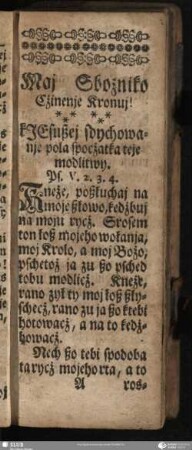 Maj Sbožniko
Cžinenje Kronuj!
* * * * *
k JEsußej sdychowa-
nje pola spocžatka teje
modlitwy.
Ps. V. 2. 3. 4.
Kneže, poßkuchaj na
moje ßkowo, kedžbuj
na moju rycž. Srosem
ton koß mojeho wokanja,
moj Krolo, a moj Božo,
pschetož ja zu ßo psched
tobu modlicž. Kneže,
rano zyk ty moj koß ßky-
schecž, rano zu ja ßo ktebi
hotowacž, a na to kedž-
bowacž.
Nech ßo tebi spodoba
ta rycž mojeho rta, a to
A ros-
SLUB